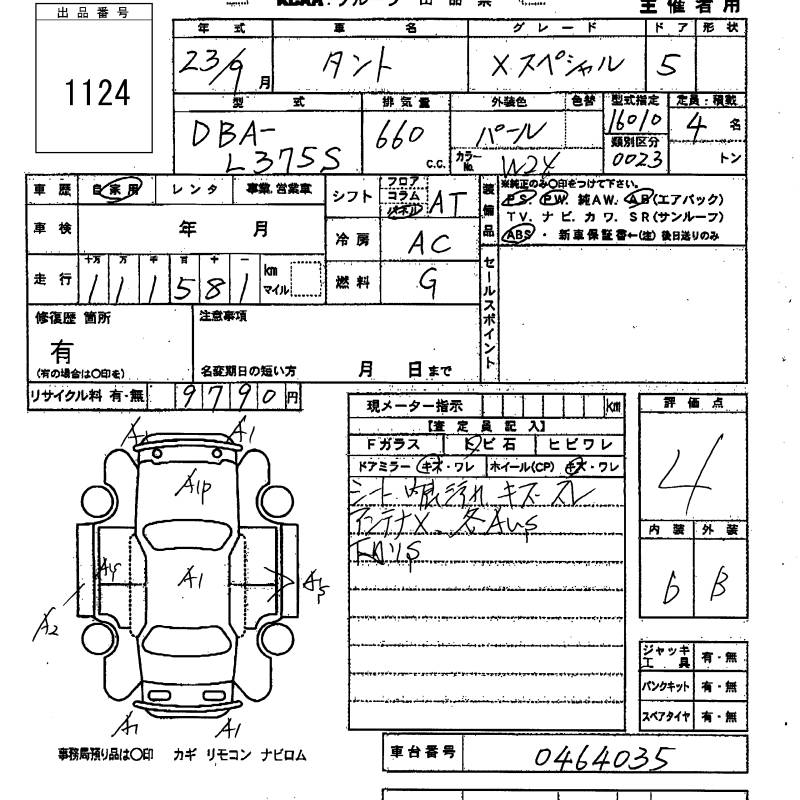 出品番号
1124
主催者用
年式 車名 グレード ドア 形状
23/9月 タント Xスペシャル 5
型式 排気量 外装色 色替 型式指定 定員・積載
DBA-L375S 660 C.C. パール 16010 4名
カラーNo. W24 類別区分 0023 トン
車歴 自家用 レンタ 事業、営業車
シフト フロア コラム パネル AT
装備品 ※純正のみ〇印をつけて下さい。
PS. PW. 純AW. AB(エアバック)
TV. ナビ. カワ. SR(サンルーフ)
ABS・新車保証書←(注)後日送りのみ
車検 年 月
冷房 AC
走行 十万 万 千 百 十 一
111581 km マイル
燃料 G
セールスポイント
修復歴 箇所
有
(有の場合は〇印を)
注意事項
名変期日の短い方 月 日まで
リサイクル料 有・無 9790円
現メーター指示 km
【査定員記入】
Fガラス トビ石 ヒビワレ
ドアミラー キズ・ワレ ホイール(CP) キズ・ワレ
シート
キズ スレ
アンテナX 各
評価点
4
内装 外装
6 B
A1 A1
A1P
A4 A1
A2
A1 A1
ジャッキ工具 有・無
パンクキット 有・無
スペアタイヤ 有・無
事務局預り品は〇印 カギ リモコン ナビロム
車台番号 0464035